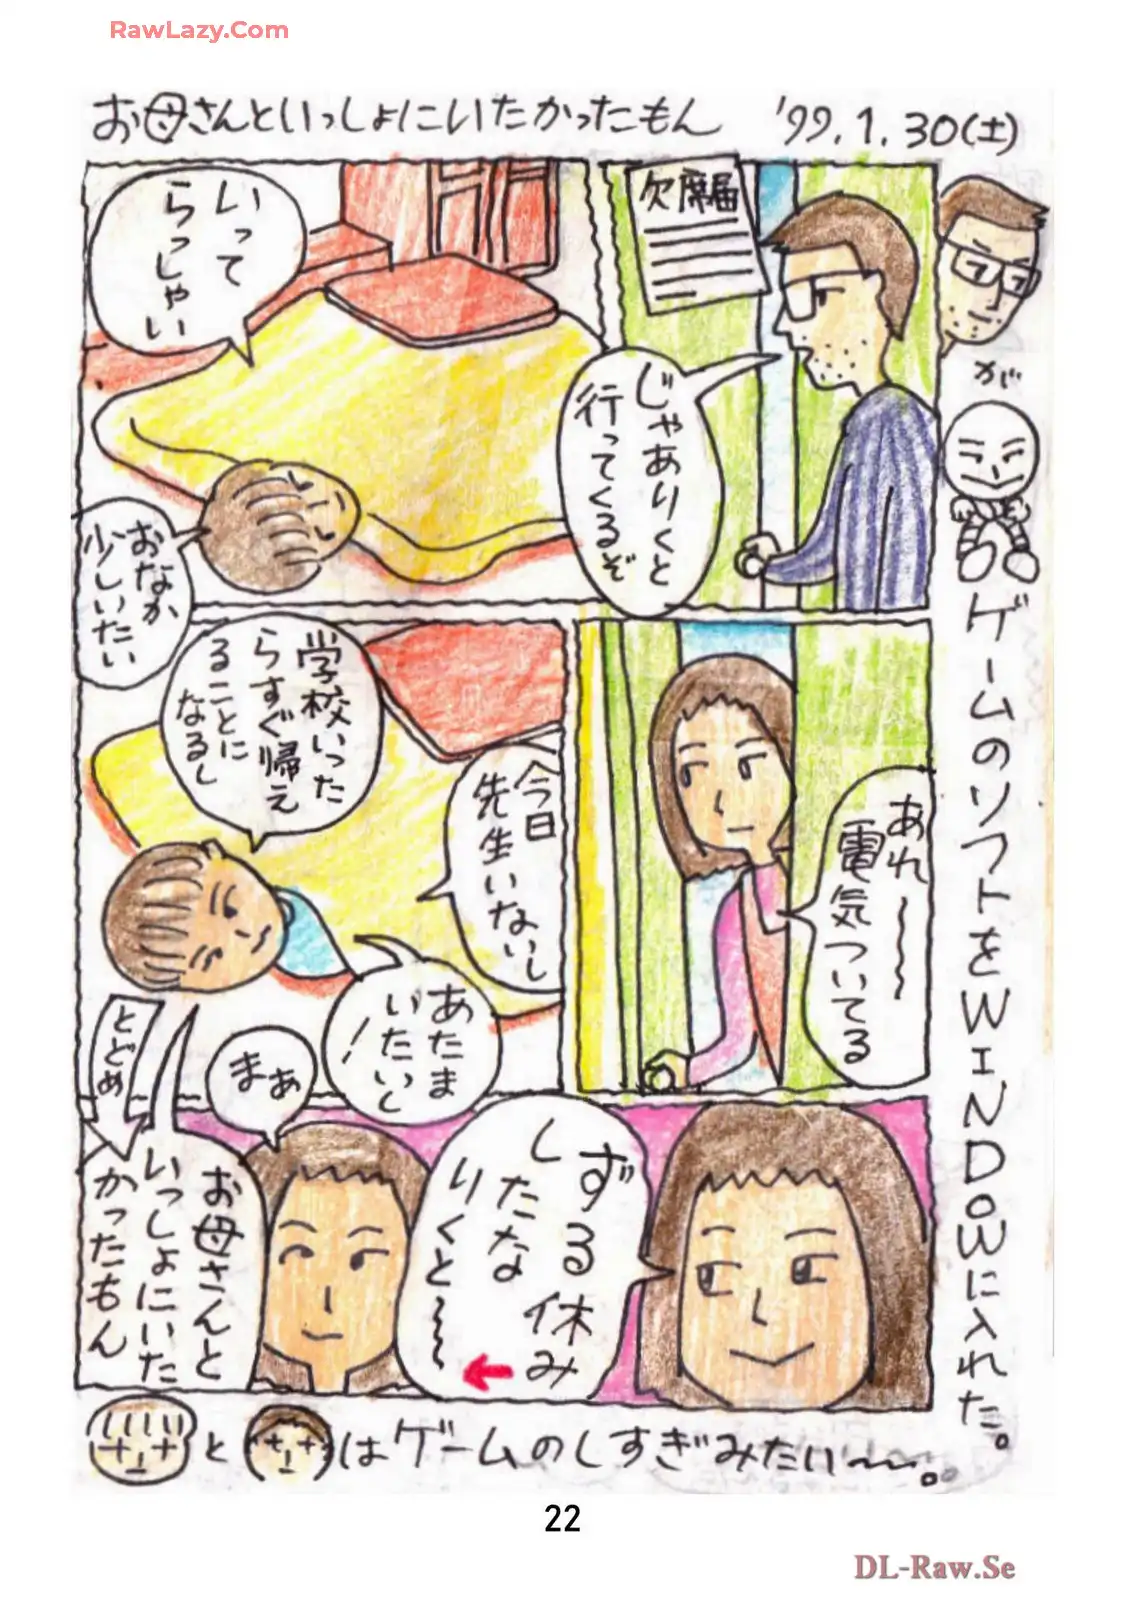 RawLazy.Com
お母さんといっしょにいたかったもん
'99.1.30(土)
欠席届
じゃありくと
行ってくるぞ
いって
らっしゃい
おなか
少しいたい
あれ〜〜〜
電気ついてる
今日
先生いないし
学校いった
らすぐ帰え
ることに
なるし
あたま
いたいし
!
ずる休み
したな
りくと〜〜
まぁ
とどめ
お母さんと
いっしょにいた
かったもん
が
ゲームのソフトをWINDOWに入れた。
と
はゲームのしすぎみたい〜〜。
22
DL-Raw.Se